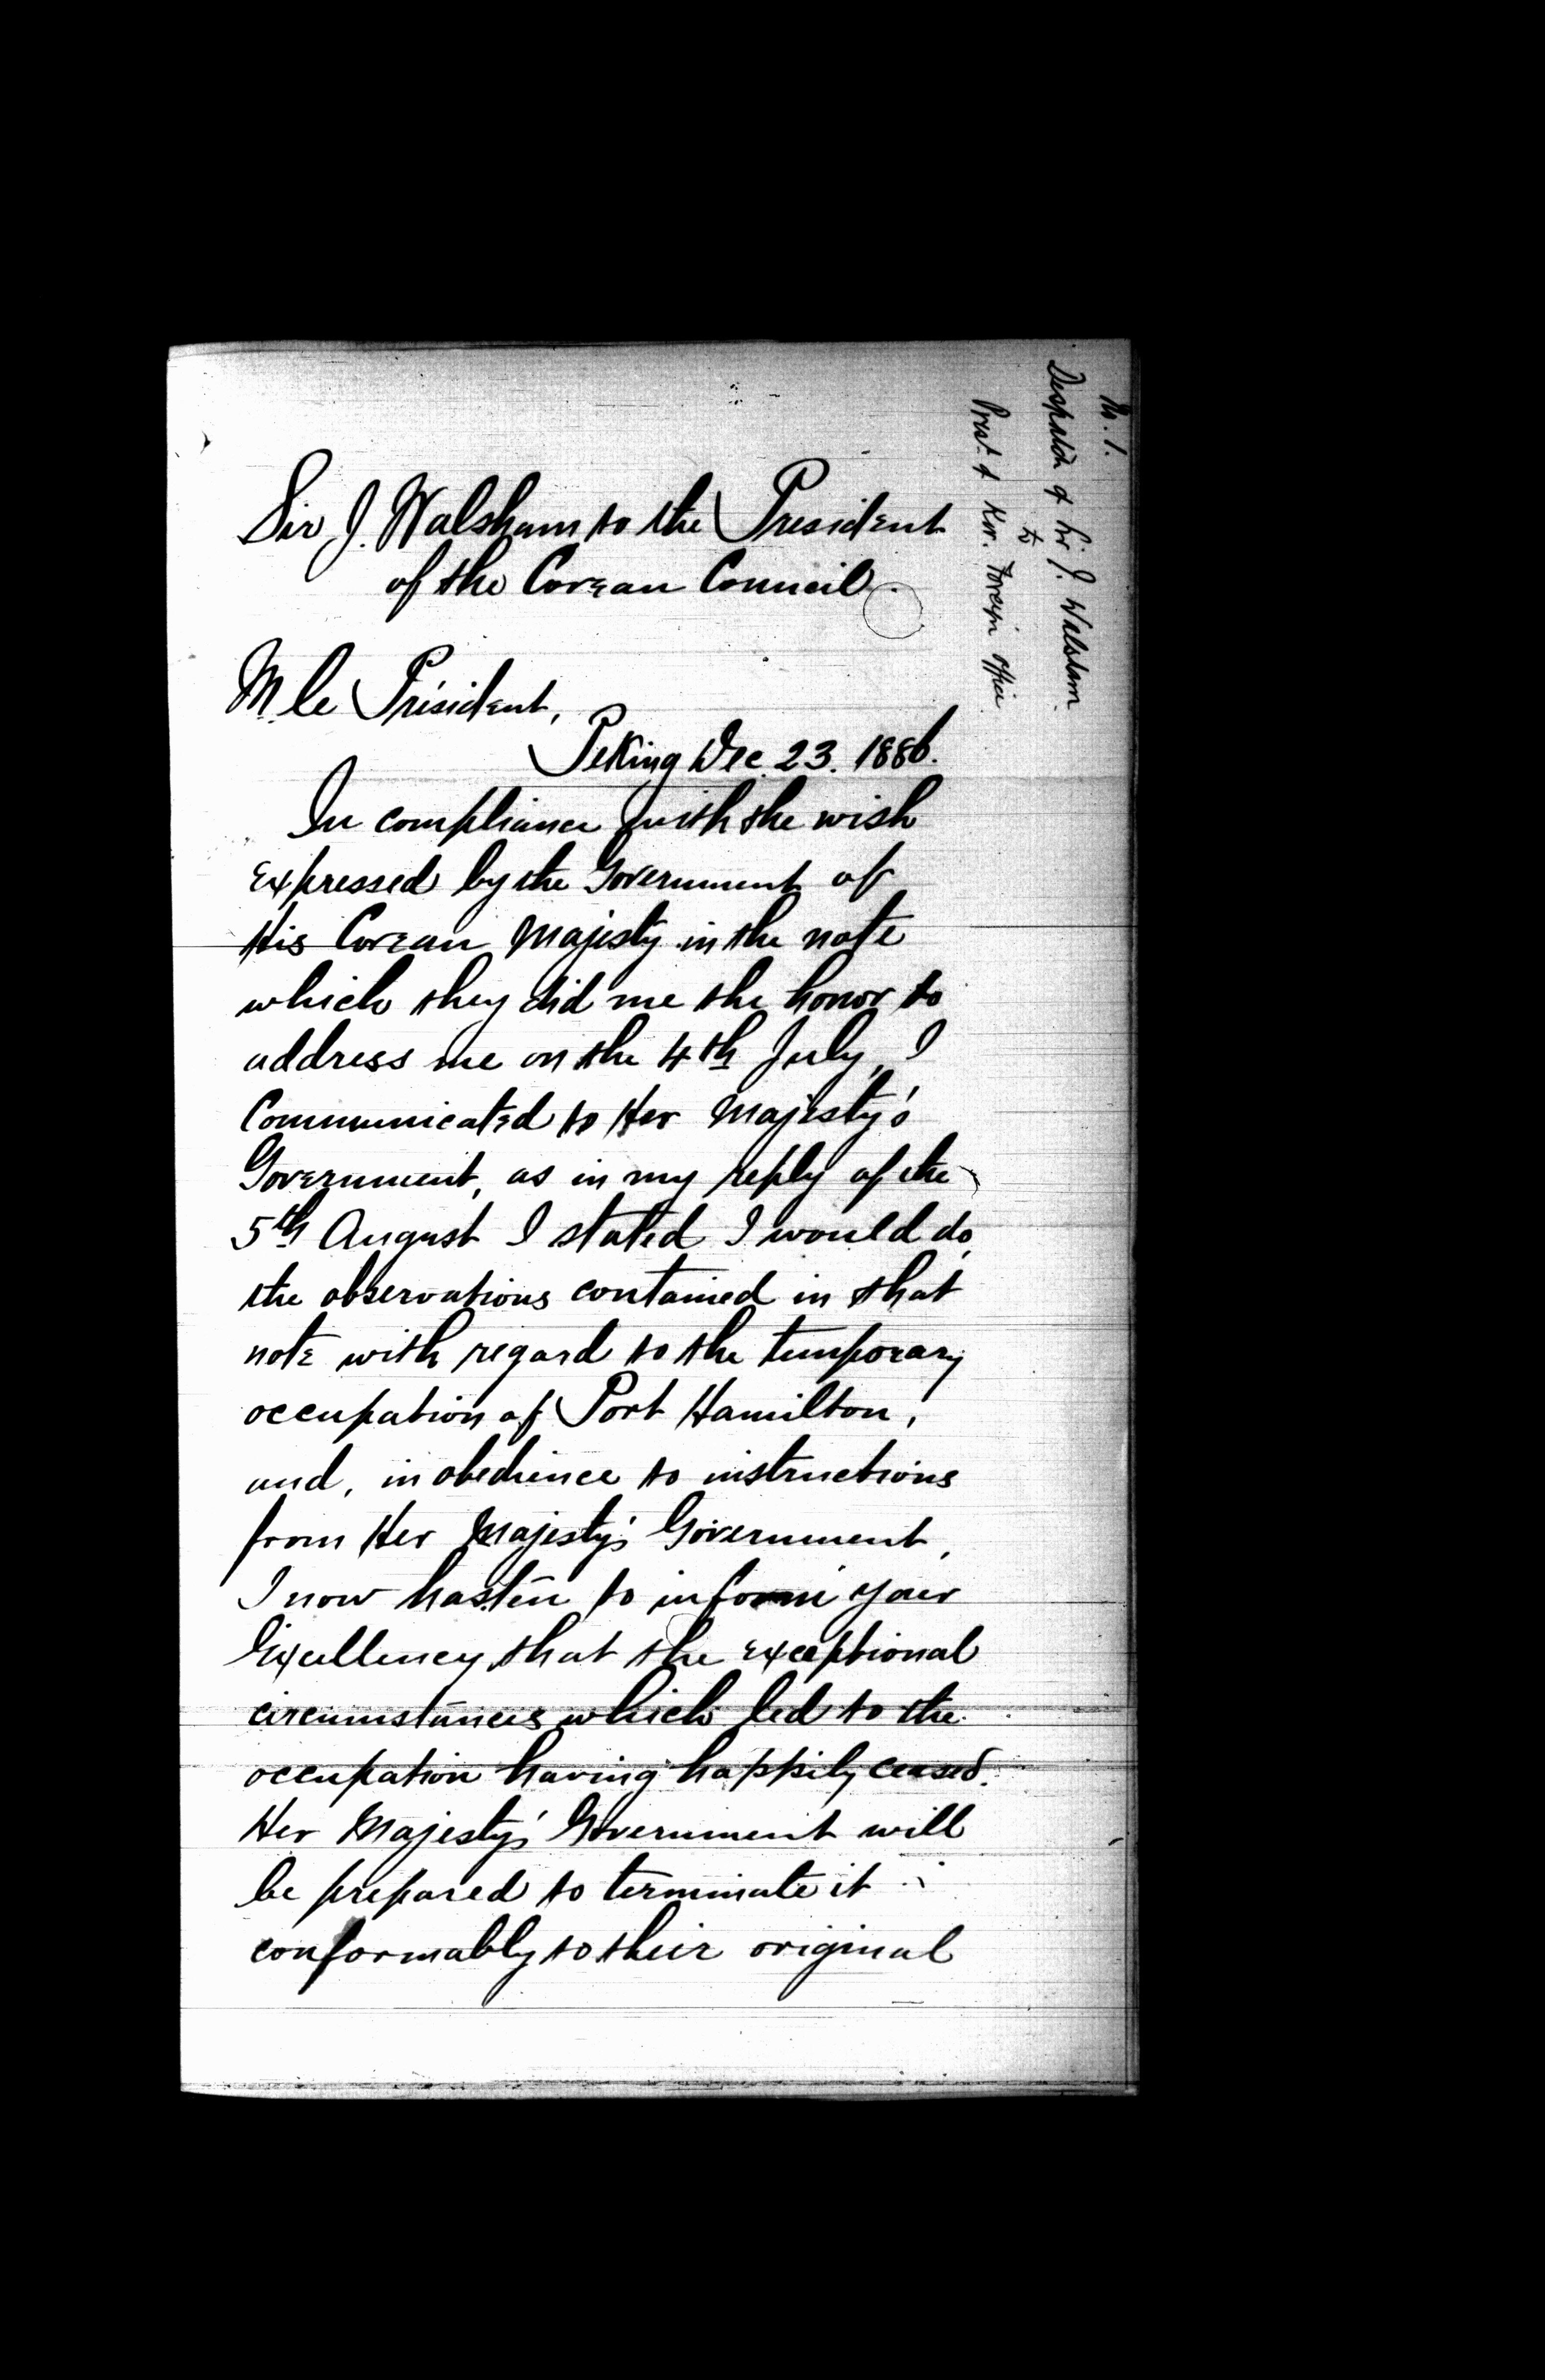 No. 1.
Despatch of Sir J. Walsham
to
Prest. of Kor. Foreign Office
Sir J. Walsham to the President
of the Corean Council.
M. le Président,
Peking Dec. 23. 1886.
In compliance with the wish
expressed by the Government of
His Corean Majesty in the note
which they did me the honor to
address me on the 4th July, I
Communicated to Her Majesty's
Government, as in my reply of the
5th August I stated I would do,
the observations contained in that
note with regard to the temporary
occupation of Port Hamilton,
and, in obedience to instructions
from Her Majesty's Government,
I now hasten to inform your
Excellency that the exceptional
circumstances which led to the
occupation having happily ceased.
Her Majesty's Government will
be prepared to terminate it
conformably to their original